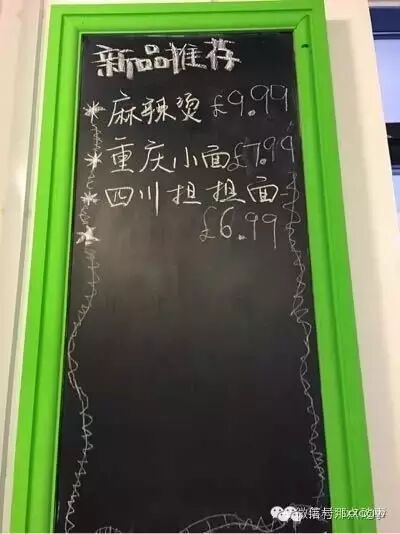 新品推荐
麻辣烫 £9.99
重庆小面 £7.99
四川担担面
£6.99